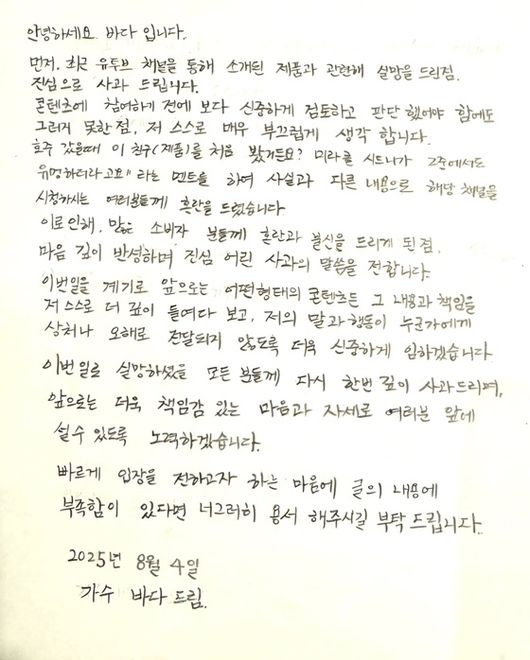 안녕하세요 바다 입니다.
먼저, 최근 유투브 채널을 통해 소개된 제품과 관련해 실망을 드린점,
진심으로 사과 드립니다.
콘텐츠에 참여하기 전에 보다 신중하게 검토하고 판단 했어야 함에도
그러지 못한 점, 저 스스로 매우 부끄럽게 생각 합니다.
호주 갔을때 이 친구(제품)를 처음 봤거든요? 미라클 시드니가 2존에서도
유명하더라고요" 라는 멘트를 하여 사실과 다른 내용으로 해당 채널을
시청하시는 여러분들께 혼란을 드렸습니다
이로 인해, 많은 소비자 분들께 혼란과 불신을 드리게 된 점,
마음 깊이 반성하며 진심 어린 사과의 말씀을 전합니다.
이번일을 계기로 앞으로는 어떤형태의 콘텐츠든 그 내용과 책임을
저 스스로 더 깊이 들여다 보고, 저의 말과 행동이 누군가에게
상처나 오해로 전달되지 않도록 더욱 신중하게 임하겠습니다
이번 일로 실망하셨을 모든 분들께 다시 한번 깊이 사과드리며,
앞으로는 더욱 책임감 있는 마음과 자세로 여러분 앞에
설수 있도록 노력하겠습니다.
빠르게 입장을 전하고자 하는 마음에 글의 내용에
부족함이 있다면 너그러히 용서 해주시길 부탁 드립니다.
2025년 8월 4일
가수 바다 드림.